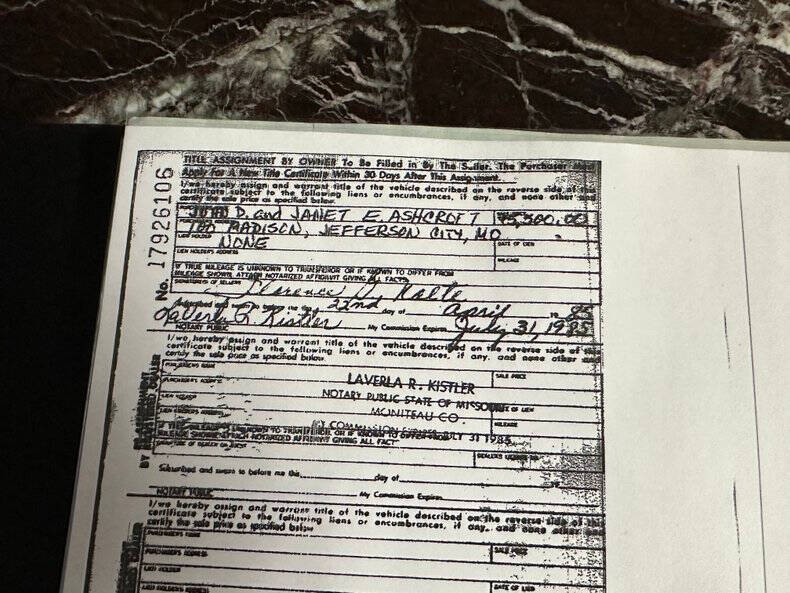 TITLE ASSIGNMENT BY OWNER To Be Filled in By The Seller. The Purchaser Must
Apply For A New Title Certificate Within 30 Days After This Assignment.
I/we hereby assign and warrant title of the vehicle described on the reverse side of this
certificate subject to the following liens or encumbrances, if any, and none other and
certify the sale price as specified below.
JOHN D. and JANET E. ASHCROFT
100 MADISON, JEFFERSON CITY, MO
LIEN HOLDER
DATE OF LIEN
NONE
LIEN HOLDER'S ADDRESS
MILEAGE
IF TRUE MILEAGE IS UNKNOWN TO TRANSFEROR OR IF KNOWN TO DIFFER FROM
MILEAGE SHOWN, ATTACH NOTARIZED AFFIDAVIT GIVING ALL FACTS
No. 17926106
Subscribed and sworn to before me this 22nd day of April 1985
Laverla R. Kistler My Commission Expires July 31, 1985
NOTARY PUBLIC
I/we hereby assign and warrant title of the vehicle described on the reverse side of this
certificate subject to the following liens or encumbrances, if any, and none other and
certify the sale price as specified below.
PURCHASER'S NAME
SALE PRICE
LAVERLA R. KISTLER
PURCHASER'S ADDRESS
NOTARY PUBLIC STATE OF MISSOURI
DATE OF LIEN
LIEN HOLDER
MONITEAU CO.
LIEN HOLDER'S ADDRESS
MILEAGE
MY COMMISSION EXPIRES JULY 31 1985
IF TRUE MILEAGE IS UNKNOWN TO TRANSFEROR OR IF KNOWN TO DIFFER FROM
MILEAGE SHOWN, ATTACH NOTARIZED AFFIDAVIT GIVING ALL FACT
Subscribed and sworn to before me this day of 19
NOTARY PUBLIC My Commission Expires
I/we hereby assign and warrant title of the vehicle described on the reverse side of this
certificate subject to the following liens or encumbrances, if any, and none other and
certify the sale price as specified below
PURCHASER'S NAME
PURCHASER'S ADDRESS
SALE PRICE
LIEN HOLDER
LIEN HOLDER'S ADDRESS
DATE OF LIEN